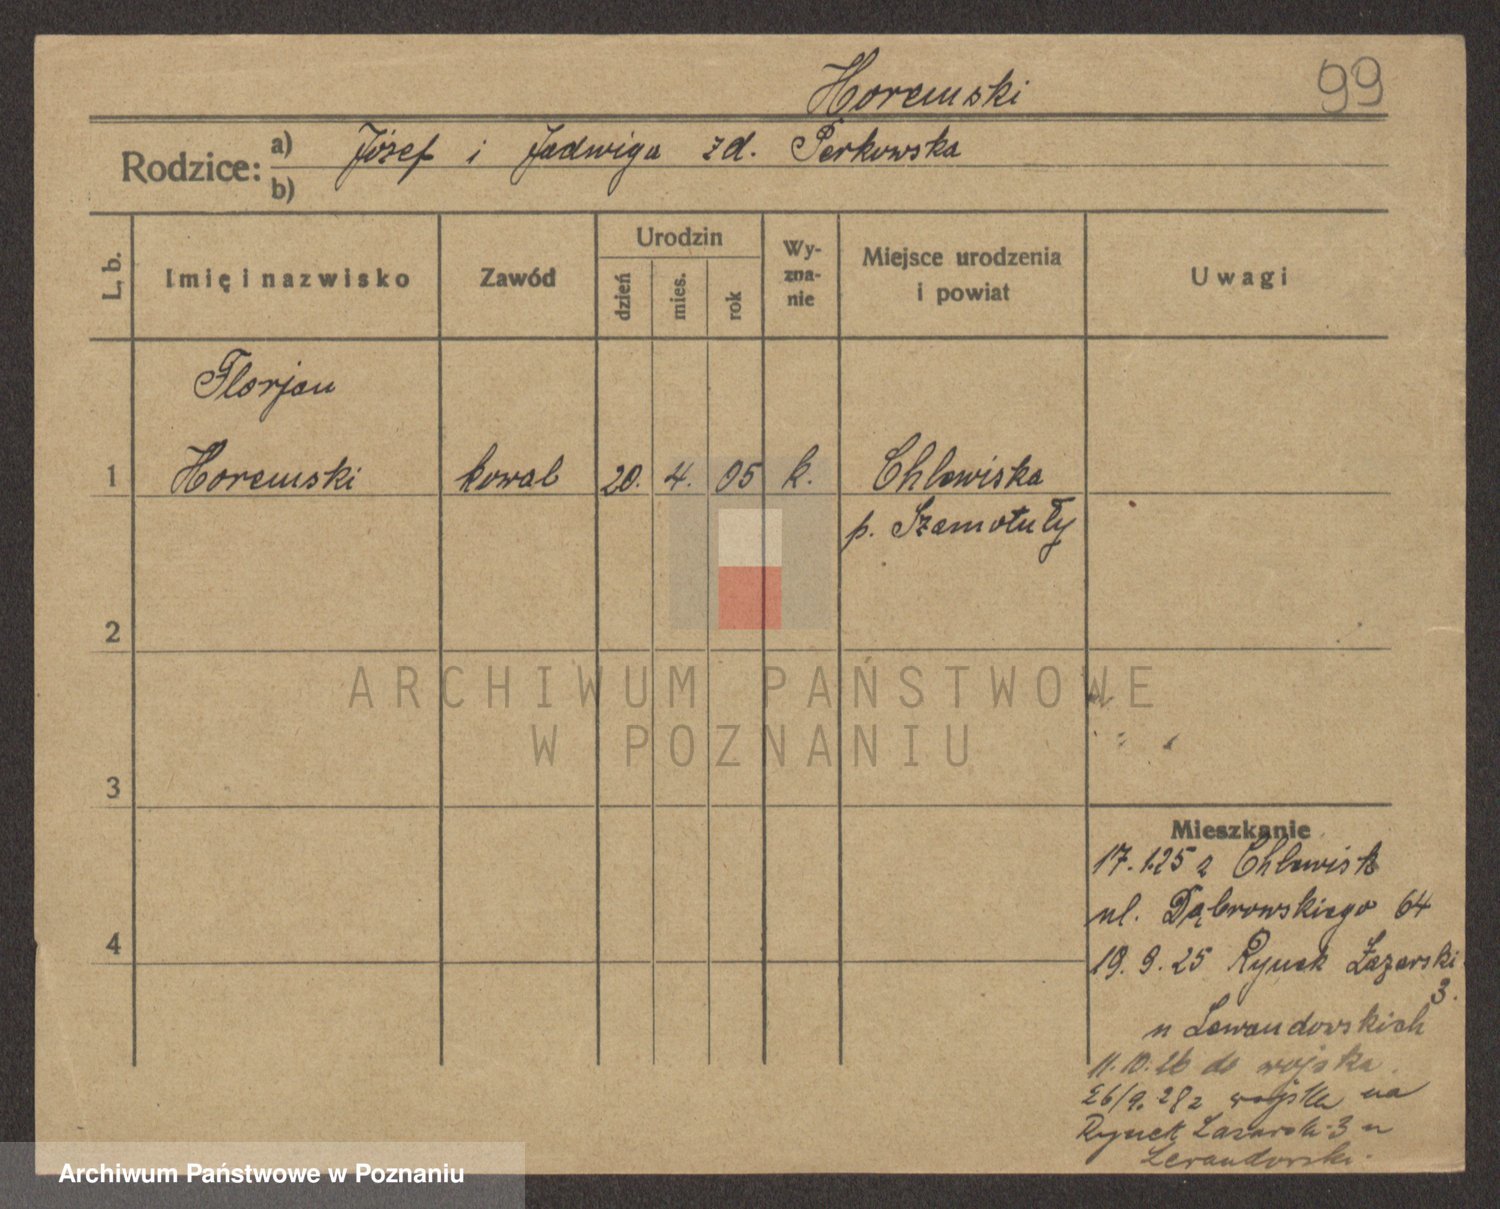 Horemski
99
Rodzice: a) Józef i Jadwiga zd. Perkowska
b)
L. b.
Imię i nazwisko
Zawód
Urodzin
dzień
mies.
rok
Wy-
zna-
nie
Miejsce urodzenia
i powiat
Uwagi
Florjan
1 Horemski kowal 20. 4. 05 k. Chlewiska
p. Szamotuły
2
ARCHIWUM PAŃSTWOWE
W POZNANIU
3
Mieszkanie
17.1.25 z Chlewisk
ul. Dąbrowskiego 64
4
19.9.25 Rynek Łazarski
3.
u Lewandowskich
11.10.26 do wojska.
26/9.28 z wojska na
Rynek Łazarski 3 u
Lewandowski.
Archiwum Państwowe w Poznaniu